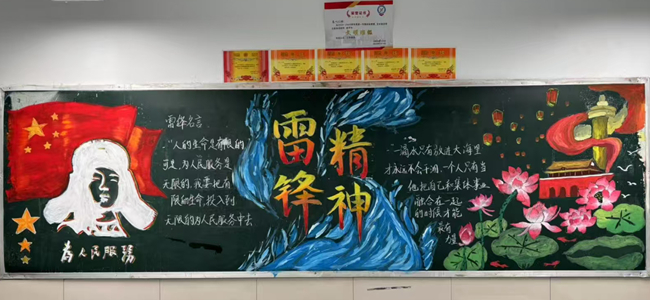 雷锋名言
"人的生命是有限的
可是,为人民服务是
无限的,我要把有
限的生命,投入到
无限的为人民服务中去
为人民服务
雷锋
精神
一滴水只有放进大海里
才永远不会干涸,一个人只有当
他把自己和集体事业
融合在一起
的时候才能
最有
力量